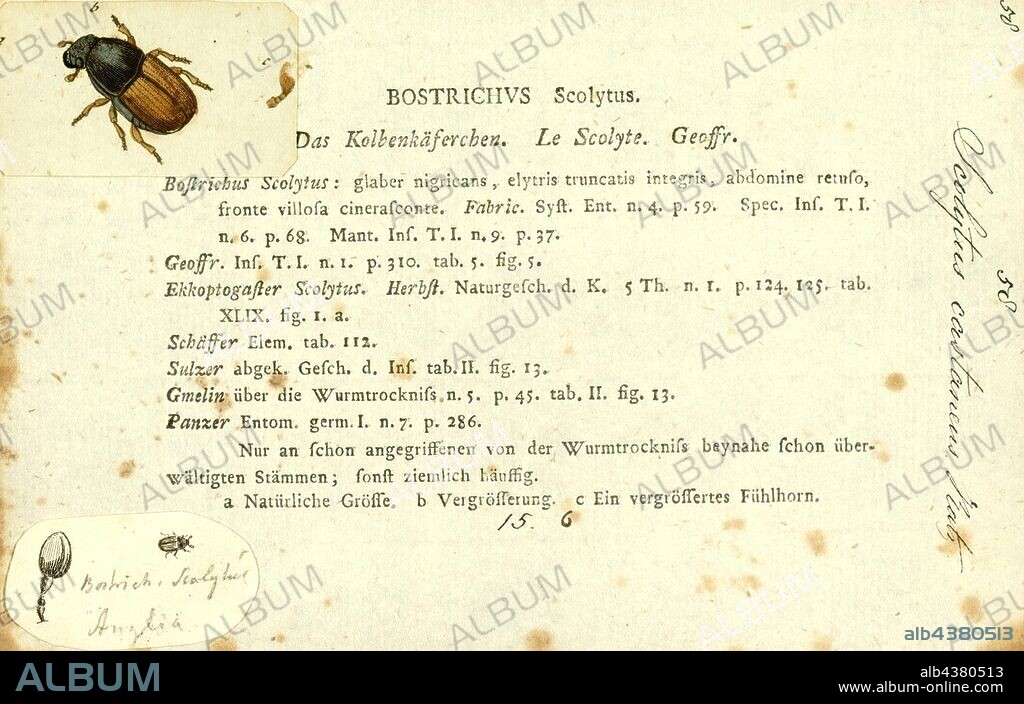 b
58
c
BOSTRICHVS Scolytus.
Das Kolbenkäferchen. Le Scolyte. Geoffr.
Boſtrichus Scolytus: glaber nigricans, elytris truncatis integris, abdomine retuſo,
fronte villoſa cineraſcente. Fabric. Syſt. Ent. n. 4. p. 59. Spec. Inſ. T. I.
n. 6. p. 68. Mant. Inſ. T. I. n. 9. p. 37.
Geoffr. Inſ. T. I. n. 1. p. 310. tab. 5. fig. 5.
Ekkoptogaſter Scolytus. Herbſt. Naturgeſch. d. K. 5 Th. n. 1. p. 124. 125. tab.
XLIX. fig. 1. a.
Schäffer Elem. tab. 112.
Sulzer abgek. Geſch. d. Inſ. tab. II. fig. 13.
Gmelin über die Wurmtrockniſs n. 5. p. 45. tab. II. fig. 13.
Panzer Entom. germ. I. n. 7. p. 286.
Nur an ſchon angegriffenen von der Wurmtrockniſs beynahe ſchon über-
wältigten Stämmen; ſonſt ziemlich häuffig.
a Natürliche Gröſſe. b Vergröſſerung. c Ein vergröſſertes Fühlhorn.
15. 6
Scolytus castaneus
58
Bostrich. Scolytus
Anglia
alb4380513
ALBUM
alb4380513
www.album-online.com